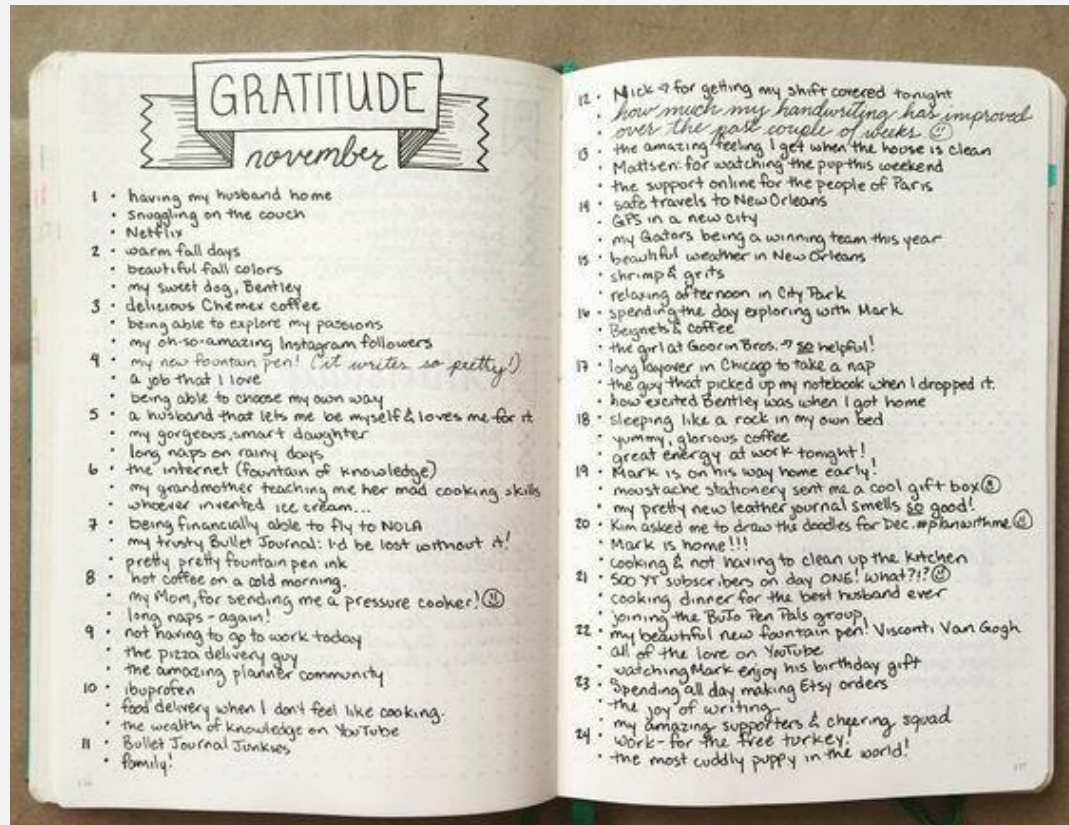 GRATITUDE
november
1 • having my husband home
• snuggling on the couch
• Netflix
2 • warm fall days
• beautiful fall colors
• my sweet dog, Bentley
3 • delicious Chemex coffee
• being able to explore my passions
• my oh-so-amazing Instagram followers
4 • my new fountain pen! (it writes so pretty!)
• a job that I love
• being able to choose my own way
5 • a husband that lets me be myself & loves me for it
• my gorgeous, smart daughter
• long naps on rainy days
6 • the internet (fountain of knowledge)
• my grandmother teaching me her mad cooking skills
• whoever invented ice cream...
7 • being financially able to fly to NOLA
• my trusty Bullet Journal: I'd be lost without it!
• pretty pretty fountain pen ink
8 • hot coffee on a cold morning.
• my Mom, for sending me a pressure cooker!
• long naps - again!
9 • not having to go to work today
• the pizza delivery guy
• the amazing planner community
10 • ibuprofen
• food delivery when I don't feel like cooking.
• the wealth of knowledge on YouTube
11 • Bullet Journal Junkies
• family!
12 • Nick → for getting my shift covered tonight
• how much my handwriting has improved
• over the past couple of weeks
13 • the amazing feeling I get when the house is clean
• Mattsen: for watching the pup this weekend
• the support online for the people of Paris
14 • safe travels to New Orleans
• GPS in a new city
• my Gators being a winning team this year
15 • beautiful weather in New Orleans
• shrimp & grits
• relaxing afternoon in City Park
16 • spending the day exploring with Mark
• Beignets & coffee
• the girl at Goorin Bros. → so helpful!
17 • long layover in Chicago to take a nap
• the guy that picked up my notebook when I dropped it.
• how excited Bentley was when I got home
18 • sleeping like a rock in my own bed
• yummy, glorious coffee
• great energy at work tonight!
19 • Mark is on his way home early!
• moustache stationery sent me a cool gift box
• my pretty new leather journal smells so good!
20 • Kim asked me to draw the doodles for Dec. #planwithme
• Mark is home!!!
• cooking & not having to clean up the kitchen
21 • 500 YT subscribers on day ONE! what?!?
• cooking dinner for the best husband ever
• joining the BuJo Pen Pals group
22 • my beautiful new fountain pen! Visconti Van Gogh
• all of the love on YouTube
• watching Mark enjoy his birthday gift
23 • Spending all day making Etsy orders
• the joy of writing
• my amazing supporters & cheering squad
24 • work - for the free turkey!
• the most cuddly puppy in the world!